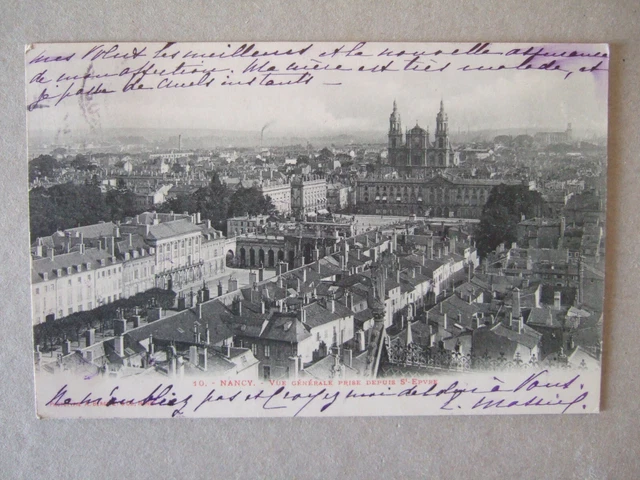 mes Vœux les meilleures et la nouvelle assurance
de mon affection. Ma mère est très malade, et
je passe de cruels instants —
50. - NANCY. - VUE GÉNÉRALE PRISE DEPUIS St-EPVRE
Ne m'oubliez pas et Croyez moi de loin à Vous.